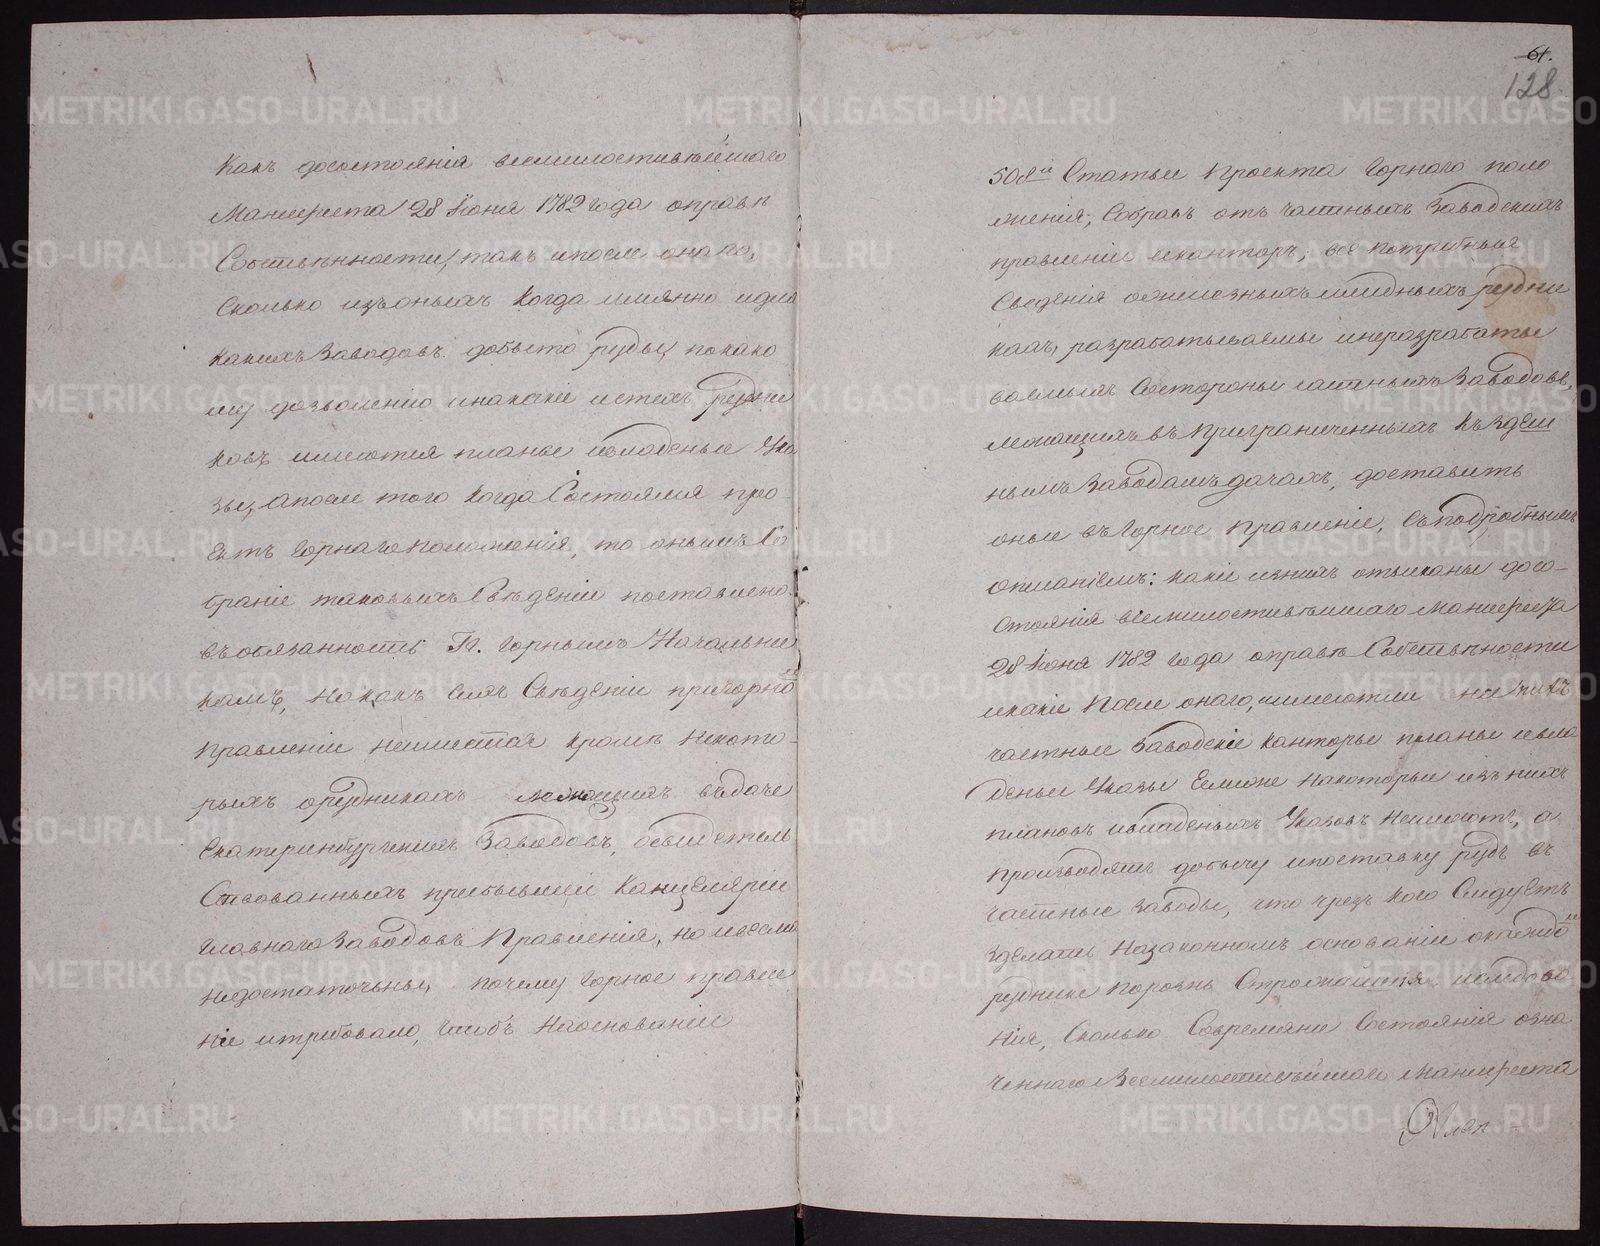 Какъ досостоянія всемилостивѣйшаго
Манифеста 28 Іюня 1782 года оправѣ
Собственности, такъ ипосле онаго,
Сколько изъоныхъ когда имянно идля
какихъ Заводовъ добыто руды, покако
му дозволенію инакакіе истехъ рудни
ковъ имеются планы ивладеные Ука
зы, апосле того когда Состоялся про
Ектъ Горнаго положенія, то онымъ Со
браніе таковыхъ Свѣденіи поставлено
въобязанность Гг. Горнымъ Начальни
камъ, но какъ Сихъ Свѣденіи пригорно
правленіи неимеется кромѣ некото
рыхъ орудникахъ лежащихъ вдаче
Екатеринбургскихъ Заводовъ, освидетель
Ствованныхъ прибывшей Канцеляріи
Главнаго Заводовъ Правленія, но ивесма
недостаточны, почему Горное правле
ніе итребовало, чтобъ Наоснованіи
61.
128.
508й Статьи Проекта Горнаго поло
женія, Собравъ отъ частныхъ Заводскихъ
правленіи иканторъ, все потребныя
Сведенія ожелезныхъ имедныхъ рудни
кахъ, разрабатываемые инеразрабаты
ваемыхъ Состороны частныхъ Заводовъ,
лежащихъ въ приграниченныхъ къ здеш
нымъ Заводамъ дачахъ, доставить
оные въ Горное Правленіе, Съподробнымъ
описаніемъ: какіе изнихъ отысканы досо-
стоянія всемилостивѣйшаго Манифеста
28 Іюня 1782 года оправѣ Собственности
икакіе После онаго, иимеютли на нихъ
частные Заводскіе канторы планы ивла
деные Указы Ежели накоторые изъ нихъ
плановъ ивладеныхъ Указовъ Неимеютъ, а
производятъ добычу ипоставку рудъ въ
частные заводы, что чрезъ кого Следуетъ
зделать Назаконномъ основаніи окаждо
руднике порознь Строжайшія изследова
нія, Сколько Совремяни Состоянія озна
ченнаго Всемилостивѣйшаго Манифеста